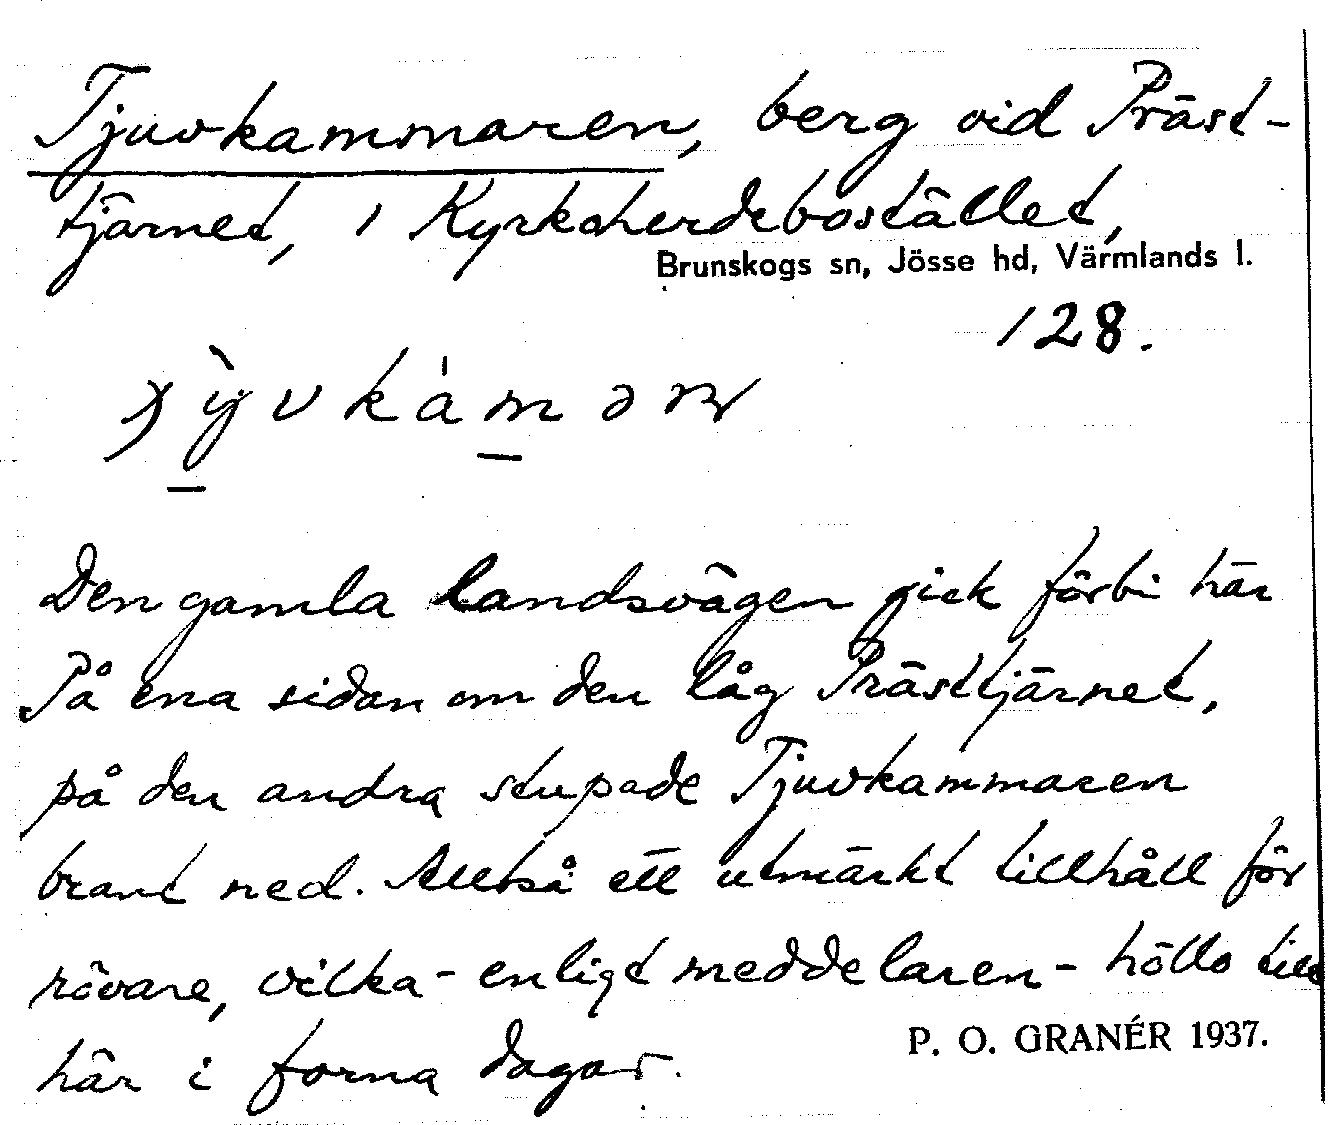 Tjuvkammaren, berg vid Präst-
tjärnet, i Kyrkoherdebostället,
Brunskogs sn, Jösse hd, Värmlands l.
128.
Den gamla landsvägen gick förbi här
På ena sidan om den låg Prästtjärnet,
på den andra stupade Tjuvkammaren
brant ned. Alltså ett utmärkt tillhåll för
rövare, vilka - enligt meddelaren - höllo till
här i forna dagar.
P. O. GRANÉR 1937.